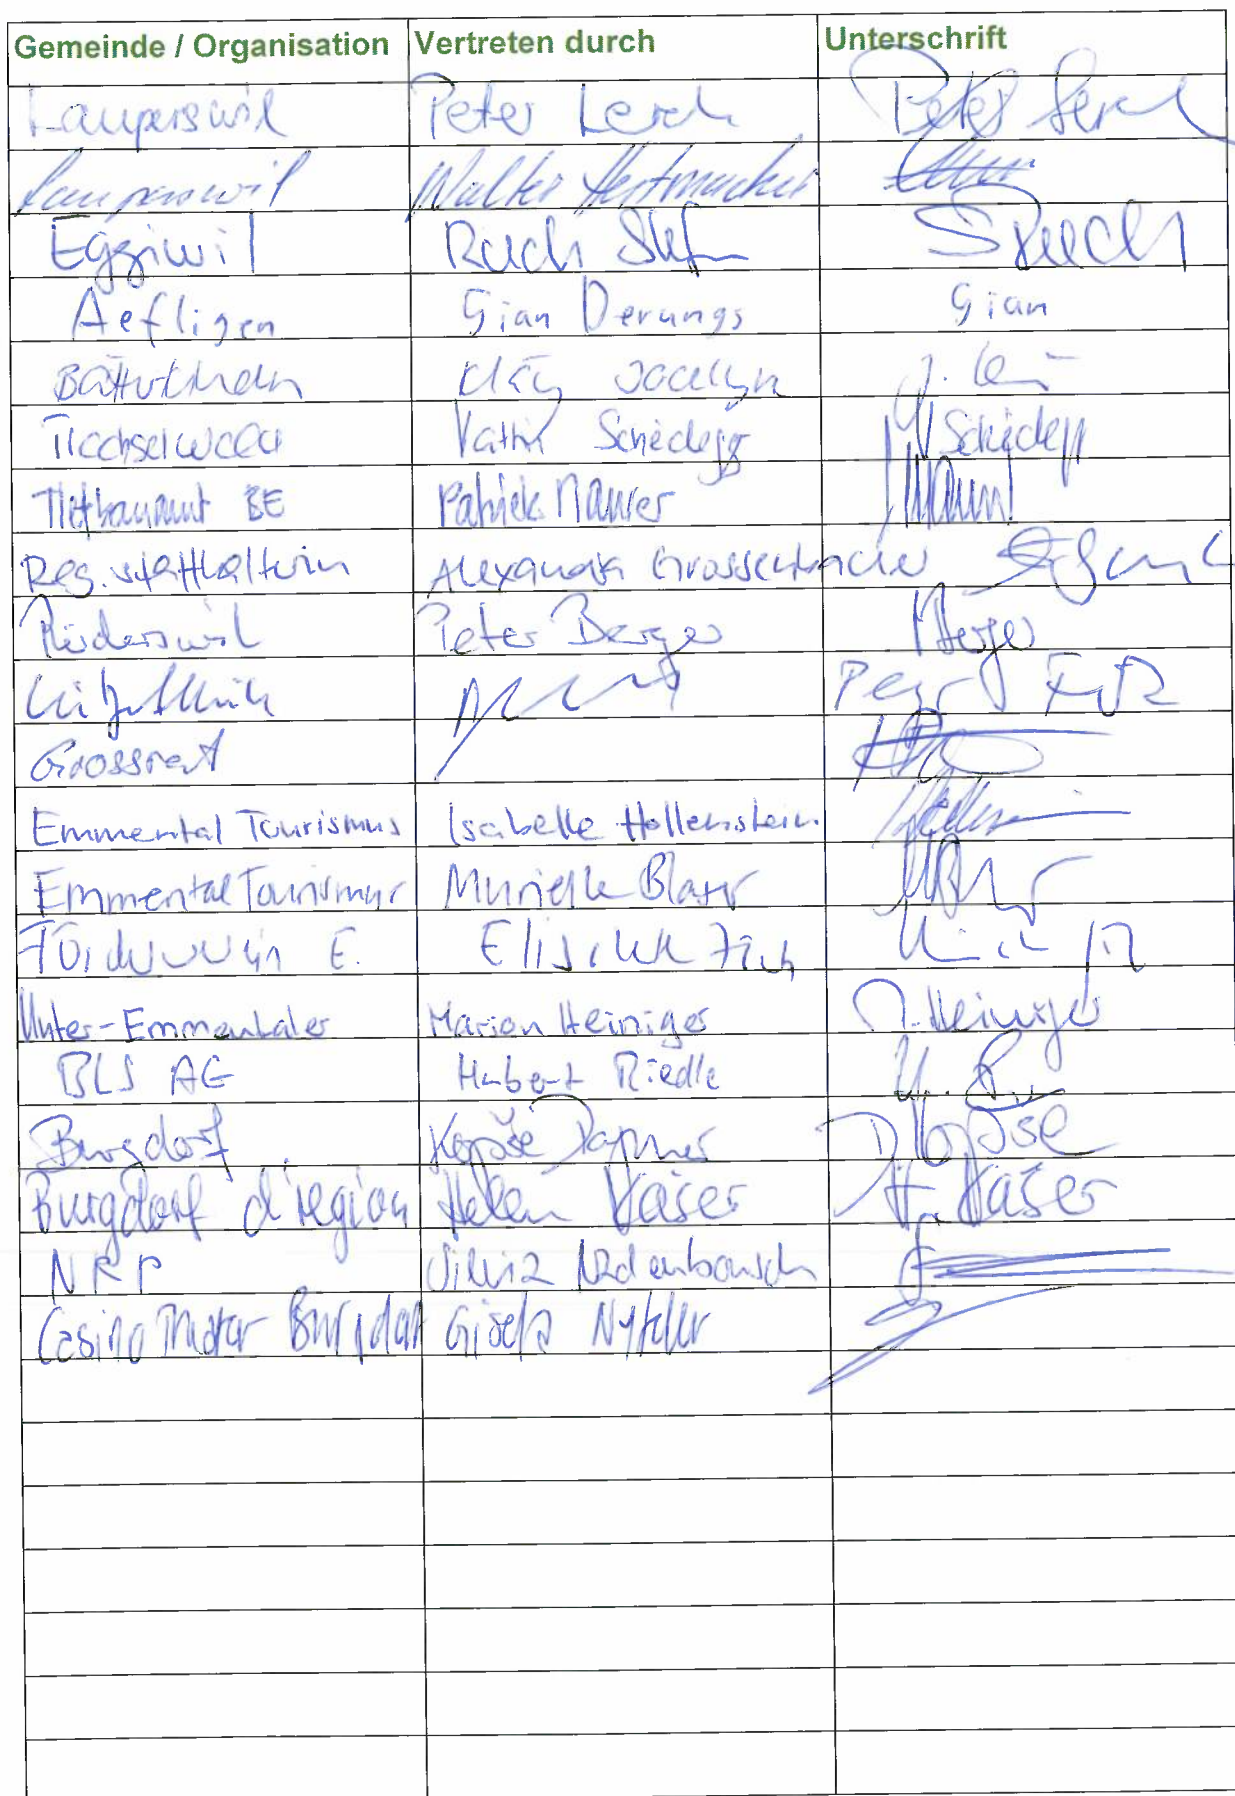 Gemeinde / Organisation Vertreten durch Unterschrift
Lauperswil Peter Lerch Peter Lerch
Lauperswil Walter
Eggiwil Ruch Stefan SRuch
Aefligen Gian Derungs Gian
Bätterkinden Jocelyn J.
Trachselwald Kathrin Scheidegger Scheidegg
Tiefbauamt BE Patrick Maurer
Reg.statthalterin Alexandra Grossenbacher
Rüderswil Peter Berger Berger
Grossrat
Emmental Tourismus Isabelle Hollenstein
Emmental Tourismus Murielle Blaser
Förderverein E. Elisabeth
Unter-Emmentaler Marion Heiniger M. Heiniger
BLS AG Hubert Riedle
Burgdorf Kopše Dagmar D Kopše
Burgdorf d'region Helen Käser H. Käser
NRP Silvia
Casino Theater Burgdorf Gisela Nyfeler